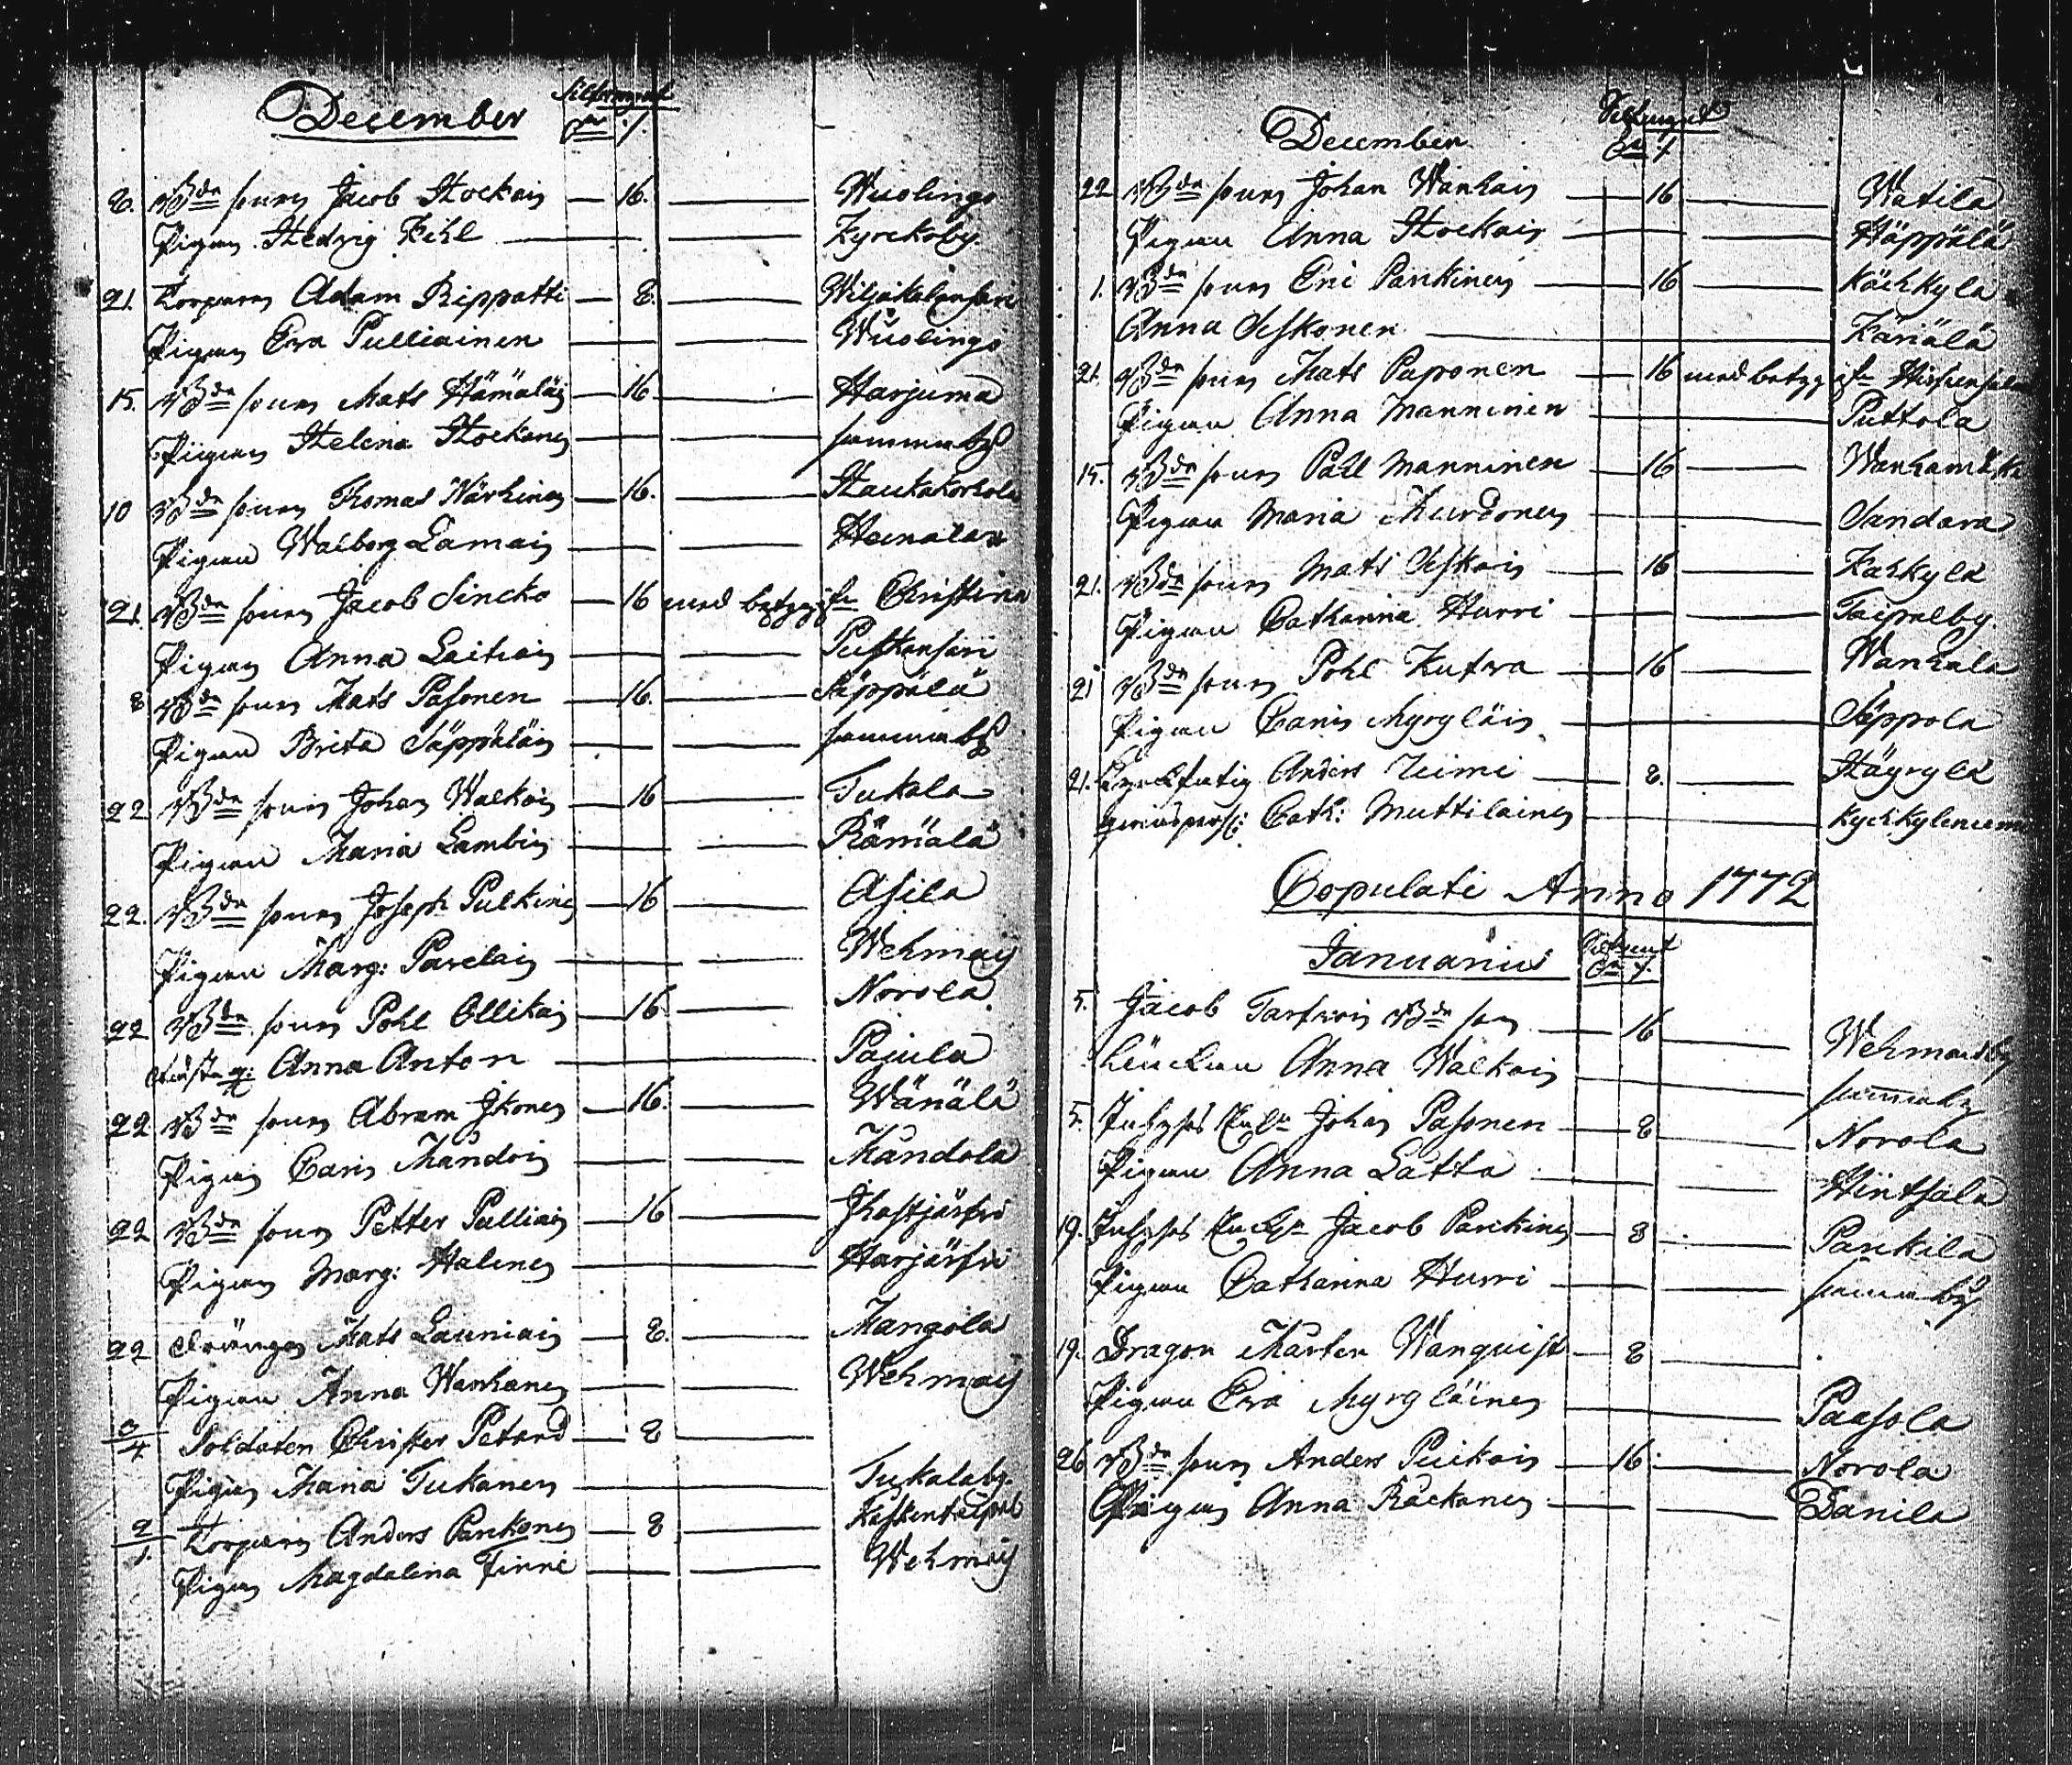 December Silfwermynt
8. Bde sonen Jacob Hockain — 16. — Wuolingo
Pigan Hedvig Fihl — Kyrckoby
21. Torparen Adam Rippatti — 8. — Wiljakalansari
Pigan Eva Pulliainen — Wuolingo
15. Bde sonen Mats Hämäläin — 16 — Harjuma
Pigan Helena Hockanen — samma by
10 Bde sonen Thomas Närhinen — 16. — Haukakorhola
Pigan Walborg Lamain —
21. Bde sonen Jacob Sincko — 16 med betyg ifr. Christina
Pigan Anna Laitiain — Puskansari
8 Bde sonen Mats Pasonen — 16. — Säppälä
Pigan Brita Säppäläin — samma by
22 Bde sonen Johan Walkoin — 16 — Tukala
Pigan Maria Lambin — Rämälä
22. Bde sonen Joseph Pulkinen — 16 — Asila
Pigan Marg: Parelain — Wehmais
22 Bde sonen Pohl Ollikain — 16 — Norola
Anna Anton — Pajula
22 Bde sonen Abram Ikonen — 16. — Wänälä
Pigan Carin Mandoin — Mandola
22 Bde sonen Petter Pulliain — 16 — Ihastjärfvi
Pigan Marg: Halinen — Harjärfvi
22 Drängen Mats Launiain — 8. — Mangola
Pigan Anna Wanhanen — Wehmais
3/4 Soldaten Christer Petard — 8 —
Pigan Maria Tukanen — Tukalaby.
2/1. Torparen Anders Parikonen — 8 — Koskentaipal
Pigan Magdalena Finne — Wehmais
December Silfmynt
22 Bde sonen Johan Wanhain — 16 — Watila
Pigan Anna Hockain — Häppälä
1. Bde sonen Eric Parikinen — 16 — Kächkylä
Anna Seskonen — Käriälä
21. Bde sonen Mats Paponen — 16 med betyg ifr Hirfvensalmi
Pigan Anna Manninen — Puttola
15. Bde sonen Påhl Manninen — 16 — Wanhamäki
Pigan Maria Murdonen — Sandara
21. Bde sonen Mats Seskoin — 16 — Kähkylä
Pigan Catharina Hurri — Taipalby
21 Bde sonen Pohl Kutwa — 16 — Wanhala
Pigan Carin Myrylöin — Säppola
21. Anders Ziimi — 8. — Häyrylä
Cath: Muttilainen — Kychkyleniemi
Copulati Anno 1772
Januarius Silfmynt
5. Jacob Tarfvoin Bde son — 16 — Wehmaisby
Änckan Anna Walkoin — samma by
5. Inhyses Änkl: Johan Pasonen — 8 — Norola
Pigan Anna Latta — Hintsala
19. Inhyses Änkl: Jacob Parckinen — 8 — Parckila
Pigan Catharina Hurri — samma by
19. Dragon Mårten Wanquist — 8 —
Pigan Eva Myrglöinen — Paasola
26 Bde sonen Anders Puikoin — 16: — Norola
Pigan Anna Räckonen — Danila